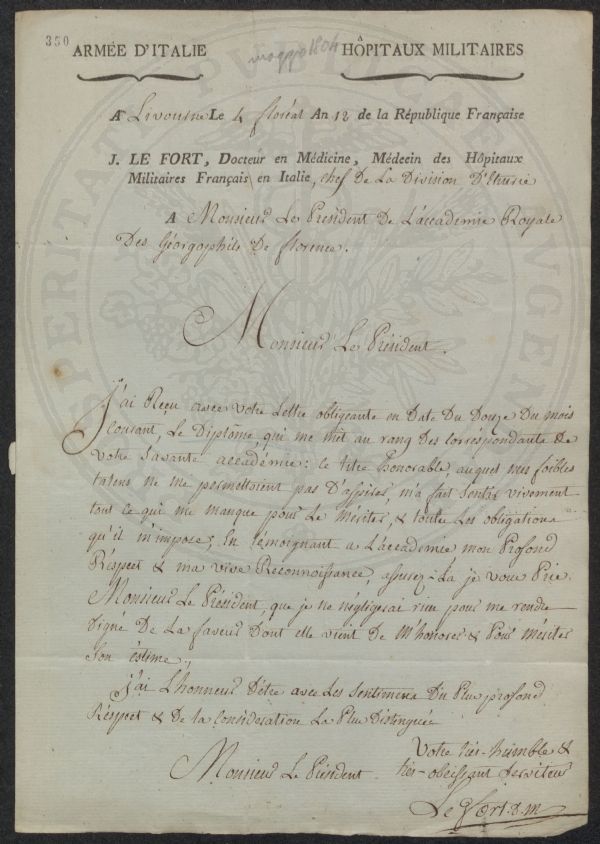 350
maggio 1804
ARMÉE D'ITALIE HÔPITAUX MILITAIRES
A Livourne Le 4 floréal An 12 de la République Française
J. LE FORT, Docteur en Médicine, Médecin des Hôpitaux
Militaires Français en Italie, chef De La Division D'Etrurie
A Monsieur Le President De L'accademie Royale
Des Géorgophils De florence.
Monsieur Le Président.
J'ai Reçu avec Votre Lettre obligeante en Date Du Douze Du mois
Courant, Le Diplome qui me met au rang Des correspondants De
Votre Savante accadémie: ce titre honorable auquel mes foibles
talens ne me permettoient pas D'aspirer m'a fait sentir vivement
tout ce qui me manque pour Le Mériter, & toutes Les obligations
qu'il m'impose; En témoignant a L'accademie mon Profond
Réspect & ma vive Reconnoissance, assurez-La je vous Prie
Monsieur Le Président, que je ne négligerai rien pour me rendre
Digne De La faveur Dont elle vient De M'honorer & Pour mériter
Son éstime.
J'ai L'honneur D'être avec Les Sentimens Du Plus profond
Réspect & De la Considération La Plus Distinguée
Monsieur Le Président
Votre très-humble &
très-obéissant serviteur
Le Fort. D. m
PUBLICAE
PROSPERITATI
AUGENDAE